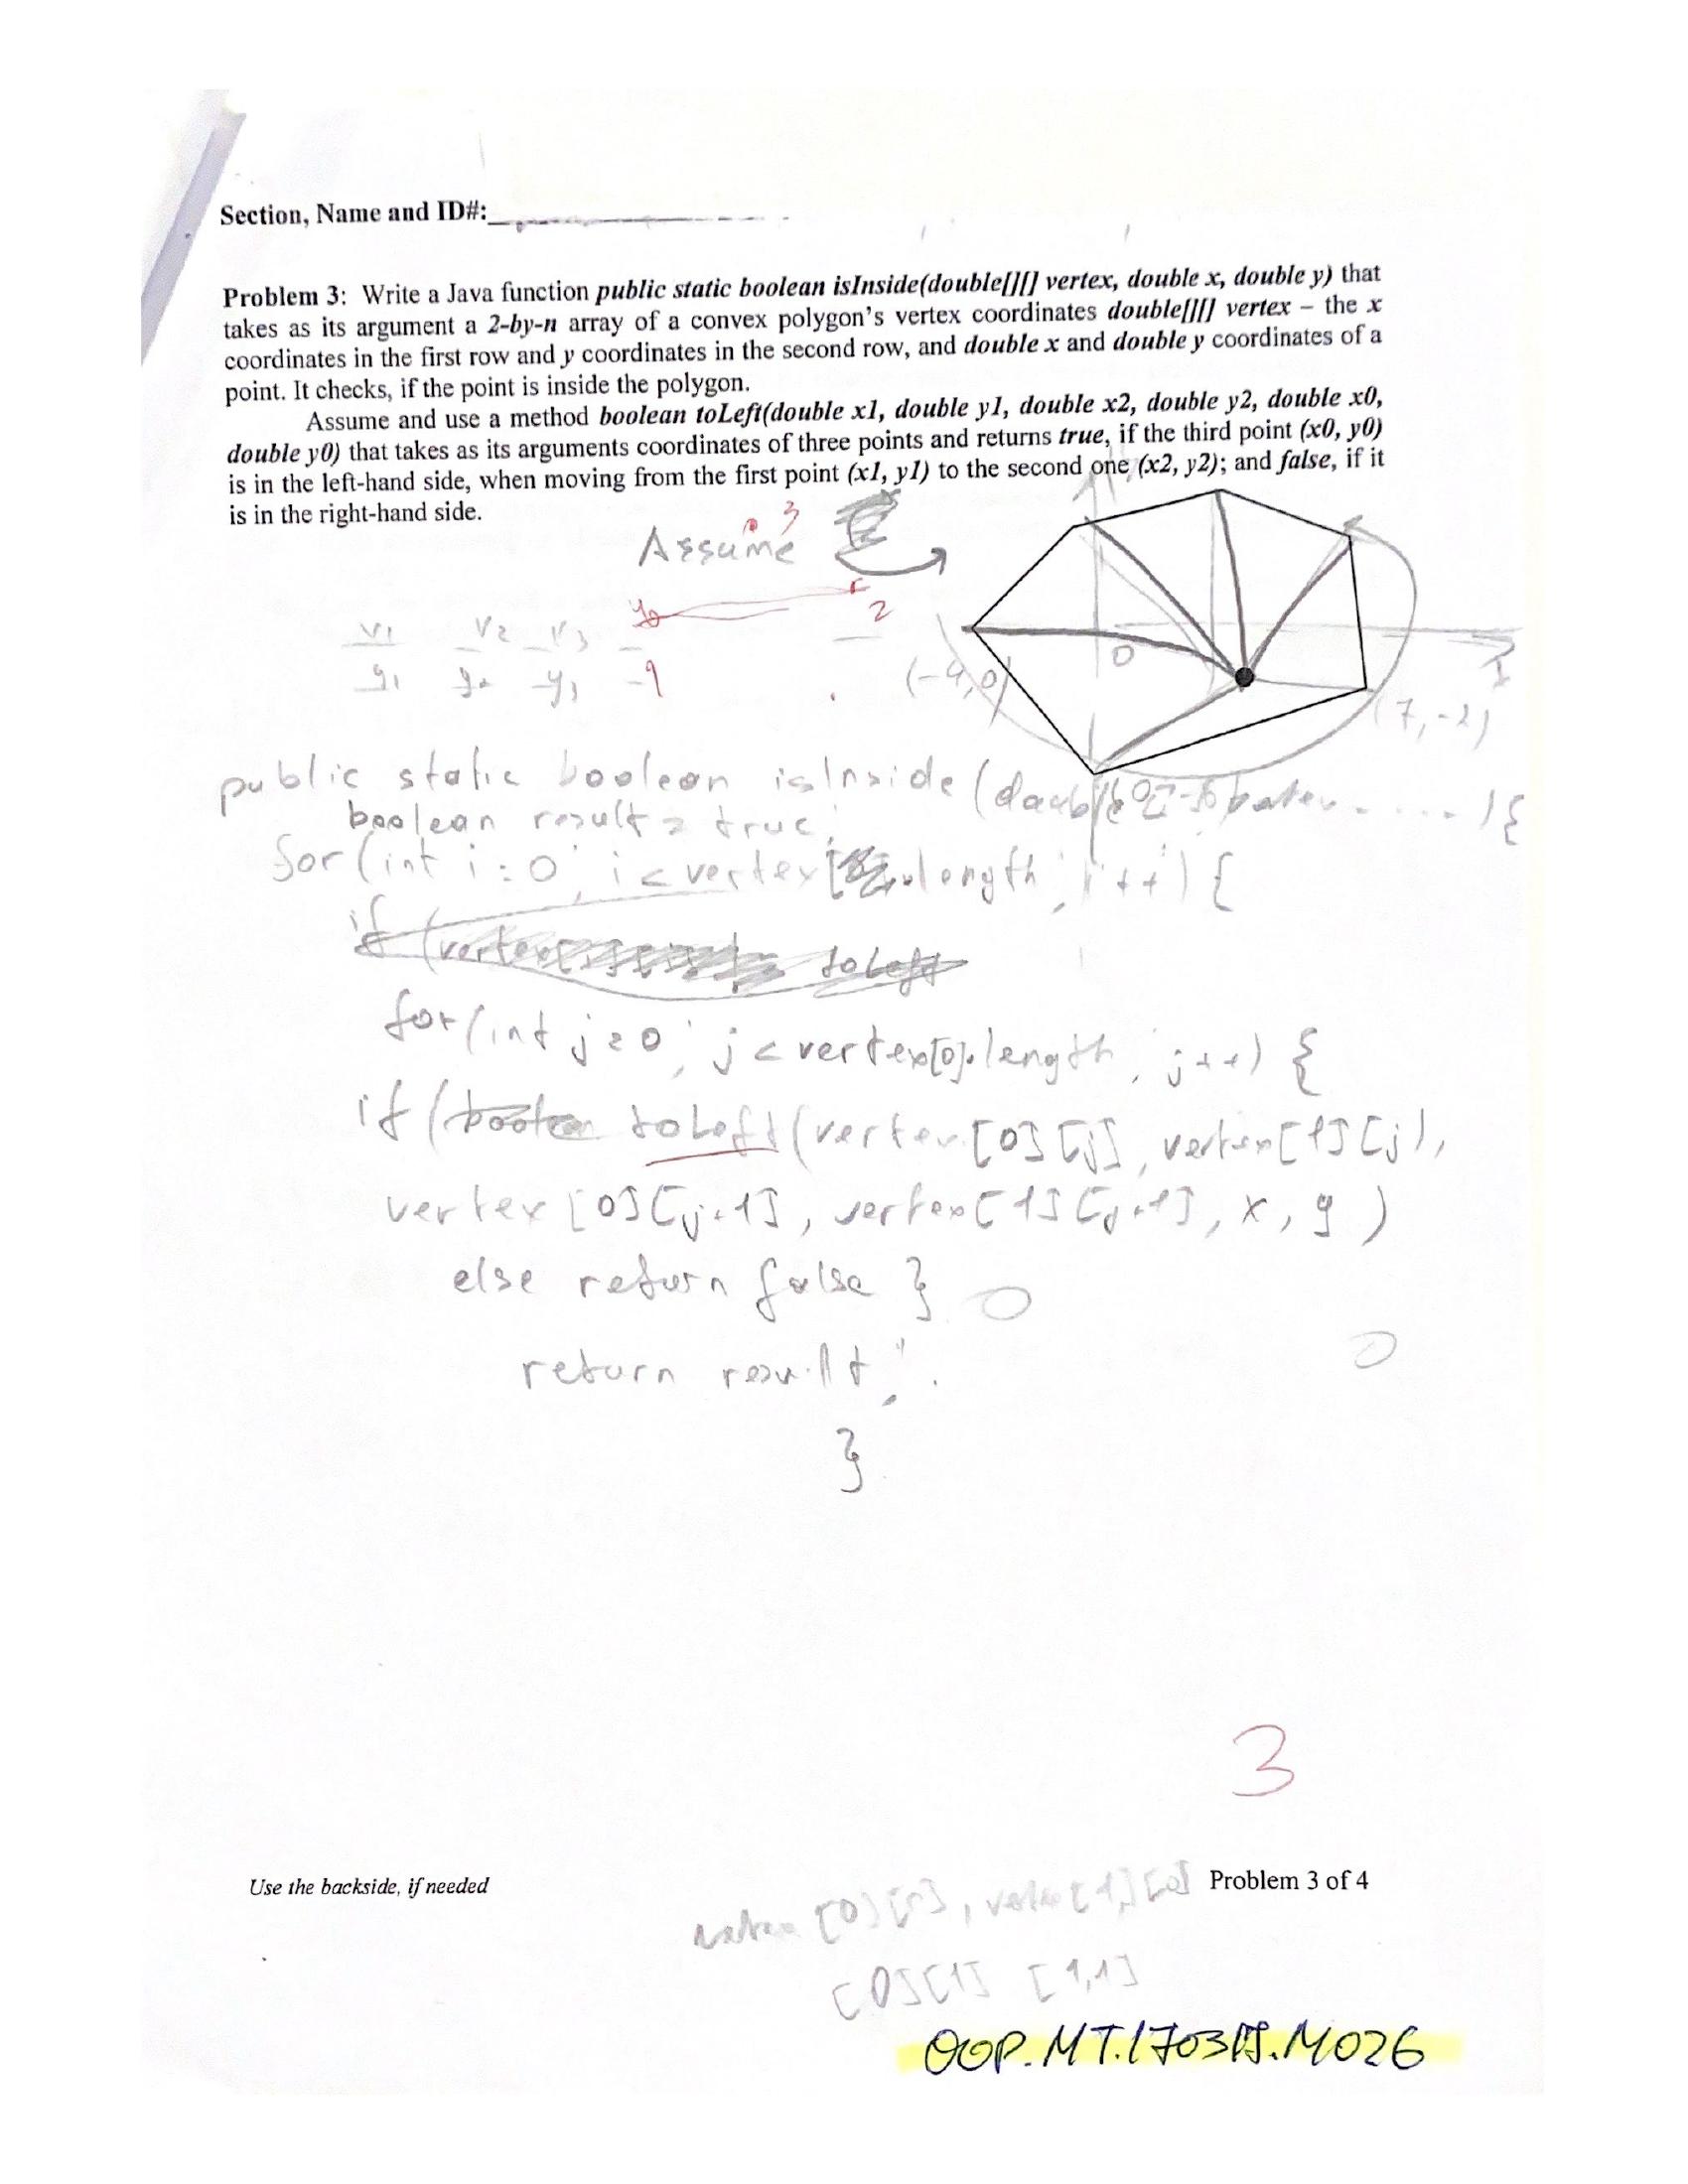 Section, Name and ID#:
Problem 3: Write a Java function public static boolean isInside(double[][] vertex, double x, double y) that
takes as its argument a 2-by-n array of a convex polygon's vertex coordinates double[][] vertex – the x
coordinates in the first row and y coordinates in the second row, and double x and double y coordinates of a
point. It checks, if the point is inside the polygon.
Assume and use a method boolean toLeft(double x1, double y1, double x2, double y2, double x0,
double y0) that takes as its arguments coordinates of three points and returns true, if the third point (x0, y0)
is in the left-hand side, when moving from the first point (x1, y1) to the second one (x2, y2); and false, if it
is in the right-hand side.
3
Assume
2
v1 v2 v3
y1 y2 y3
0
(-4,0)
(7,-2)
public static boolean isInside (double
boolean result = true;
for (int i = 0; i < vertex.length; i++) {
if (vertex toLeft
for (int j = 0; j < vertex[0].length, j++) {
if (boolean toLeft (vertex [0][j], vertex[1][j],
vertex [0][j+1], vertex[1][j+1], x, y )
else return false }
return result;
}
3
Use the backside, if needed
Problem 3 of 4
[0][1] [1,1]
OOP.MT.170315.M026